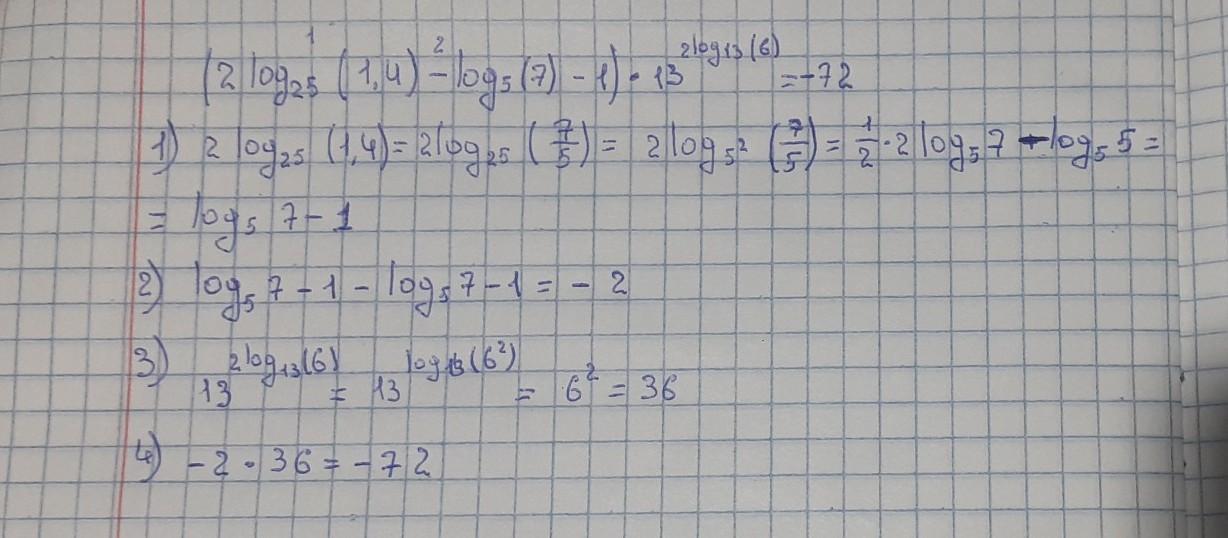 (2 log₂₅ (1,4) - log₅(7) - 1) · 13^(2log₁₃(6)) = -72
1) 2 log₂₅ (1,4) = 2log₂₅ (7/5) = 2log₅² (7/5) = 1/2 · 2 log₅ 7 - log₅ 5 =
= log₅ 7 - 1
2) log₅ 7 - 1 - log₅ 7 - 1 = - 2
3) 13^(2log₁₃(6)) = 13^(log₁₃(6²)) = 6² = 36
4) - 2 · 36 = - 72